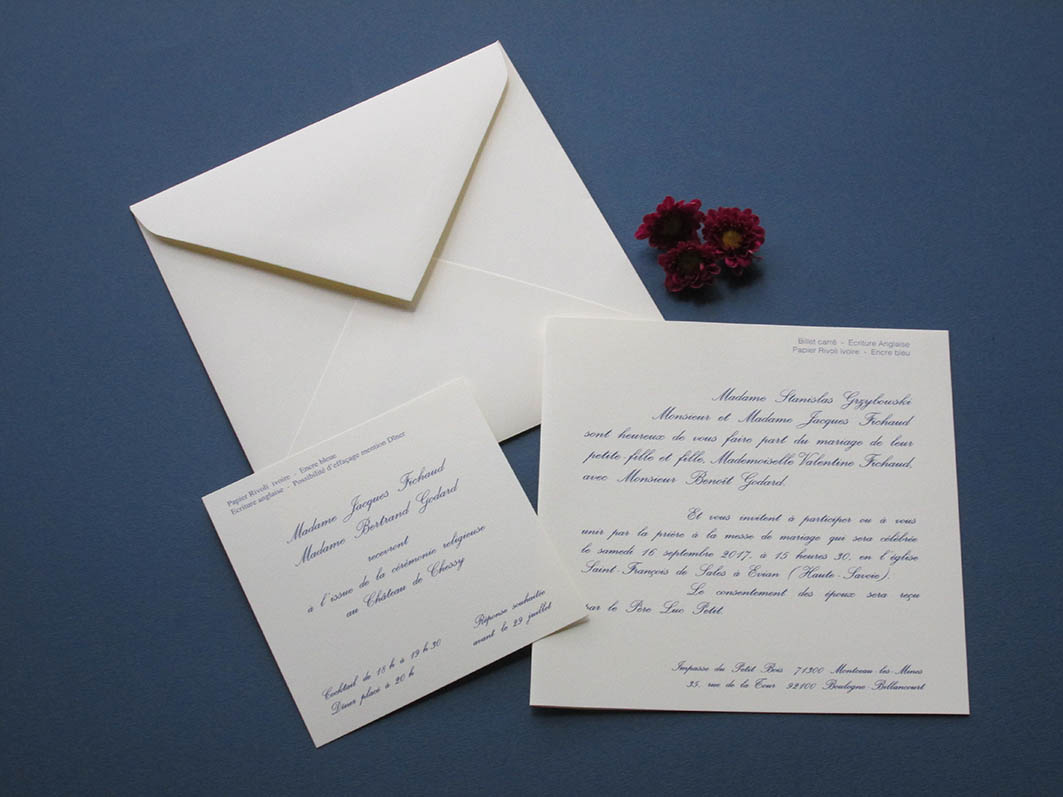 Papier Rivoli ivoire - Encre bleue
Ecriture anglaise - Possibilité d'effaçage mention Dîner
Madame Jacques Fichaud
Madame Bertrand Godard
recevront
à l'issue de la cérémonie religieuse
au Château de Chessy
Réponse souhaitée
avant le 29 juillet
Cocktail de 18 h à 19 h 30
Dîner placé à 20 h
Billet carré - Ecriture Anglaise
Papier Rivoli ivoire - Encre bleu
Madame Stanislas Grzybouski
Monsieur et Madame Jacques Fichaud
sont heureux de vous faire part du mariage de leur
petite-fille et fille, Mademoiselle Valentine Fichaud,
avec Monsieur Benoît Godard.
Et vous invitent à participer ou à vous
unir par la prière à la messe de mariage qui sera célébrée
le samedi 16 septembre 2017, à 15 heures 30, en l'église
Saint-François de Sales à Evian (Haute-Savoie).
Le consentement des époux sera reçu
par le Père Luc Petit.
Impasse du Petit Bois 71300 Montceau-les-Mines
35, rue de la Tour 92100 Boulogne-Billancourt